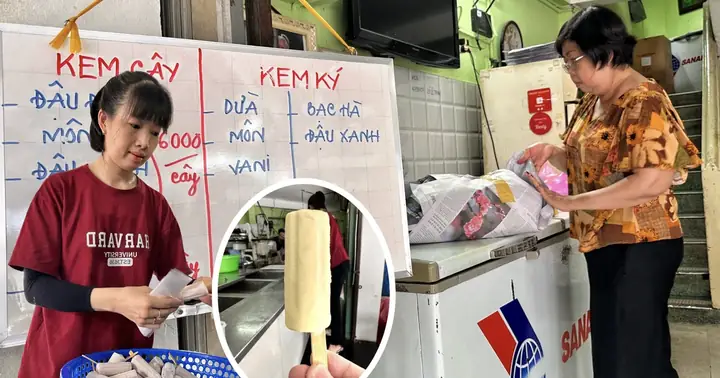 KEM CÂY
KEM KÝ
ĐẬU Đ
DỪA - BẠC HÀ
MÔN
6000
cây
MÔN - ĐẬU XANH
ĐẬU
VANI
HARVARD
UNIVERSITY
ESTD
SANA
SANA